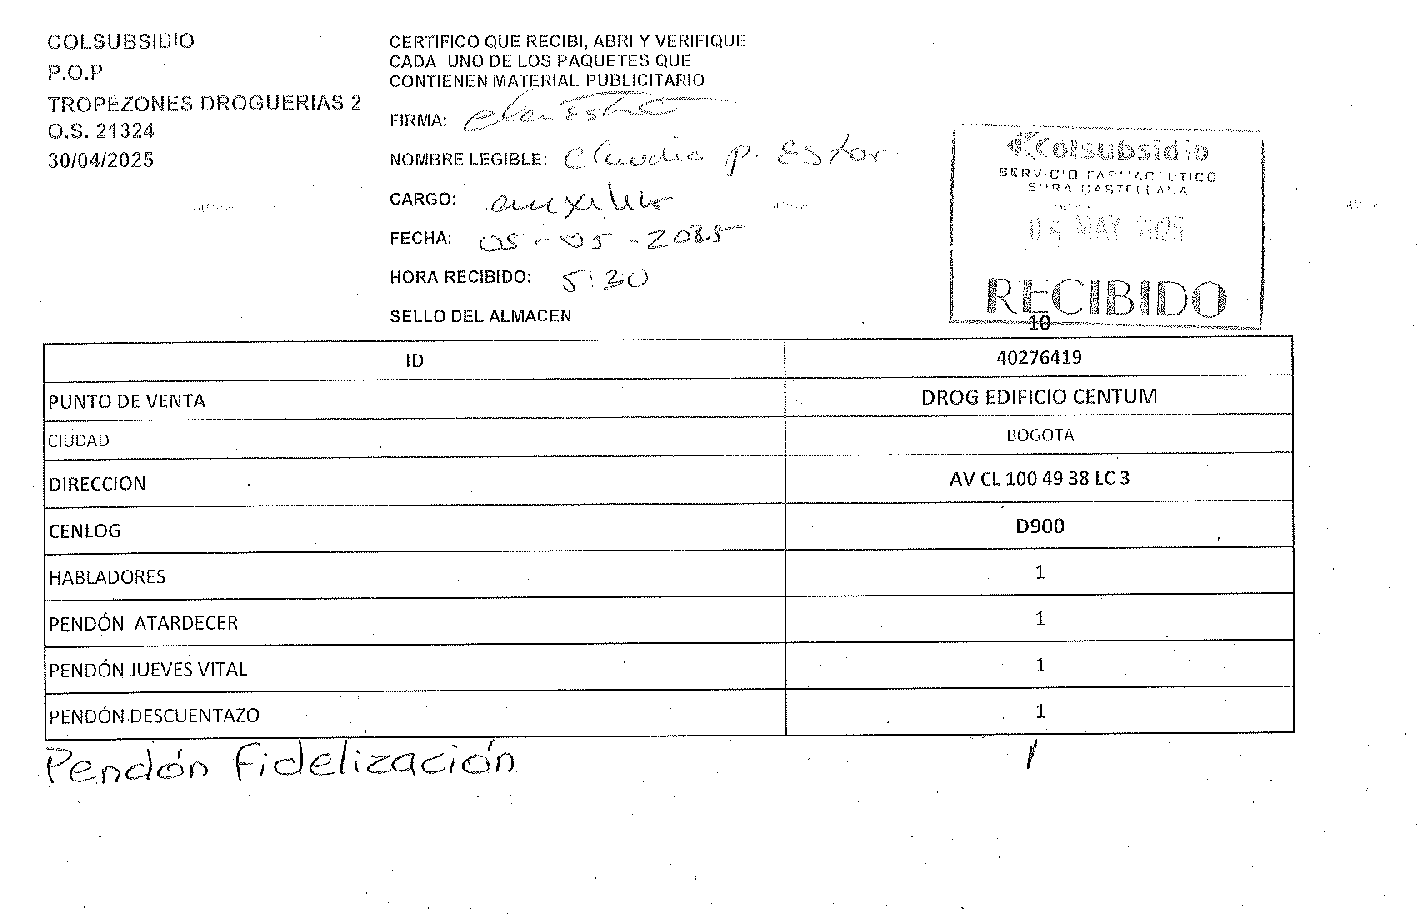 COLSUBSIDIO
P.O.P
TROPEZONES DROGUERIAS 2
O.S. 21324
30/04/2025
CERTIFICO QUE RECIBI, ABRI Y VERIFIQUE
CADA UNO DE LOS PAQUETES QUE
CONTIENEN MATERIAL PUBLICITARIO
FIRMA:
NOMBRE LEGIBLE: Claudia p. Estor
CARGO: auxiliar
FECHA: 05-05-2025
HORA RECIBIDO: 5:30
SELLO DEL ALMACEN
Colsubsidio
SERVICIO FARMACEUTICO
MAY
RECIBIDO
10
ID 40276419
PUNTO DE VENTA DROG EDIFICIO CENTUM
CIUDAD BOGOTA
DIRECCION AV CL 100 49 38 LC 3
CENLOG D900
HABLADORES 1
PENDÓN ATARDECER 1
PENDÓN JUEVES VITAL 1
PENDÓN DESCUENTAZO 1
Pendón Fidelización 1